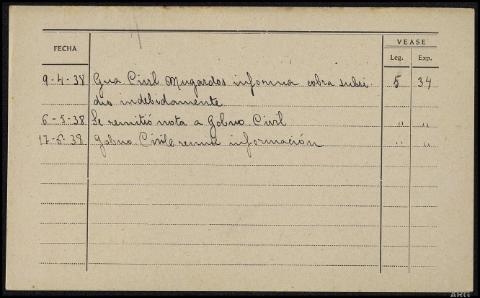 FECHA VEASE
Leg. Exp.
9-4-38 Gua Civil Mugardos informa cobra subsi- 5 34
dio indebidamente
6-5-38 Se remitió nota a Gobno Civil " "
17-5-38 Gobno Civil remite información " "